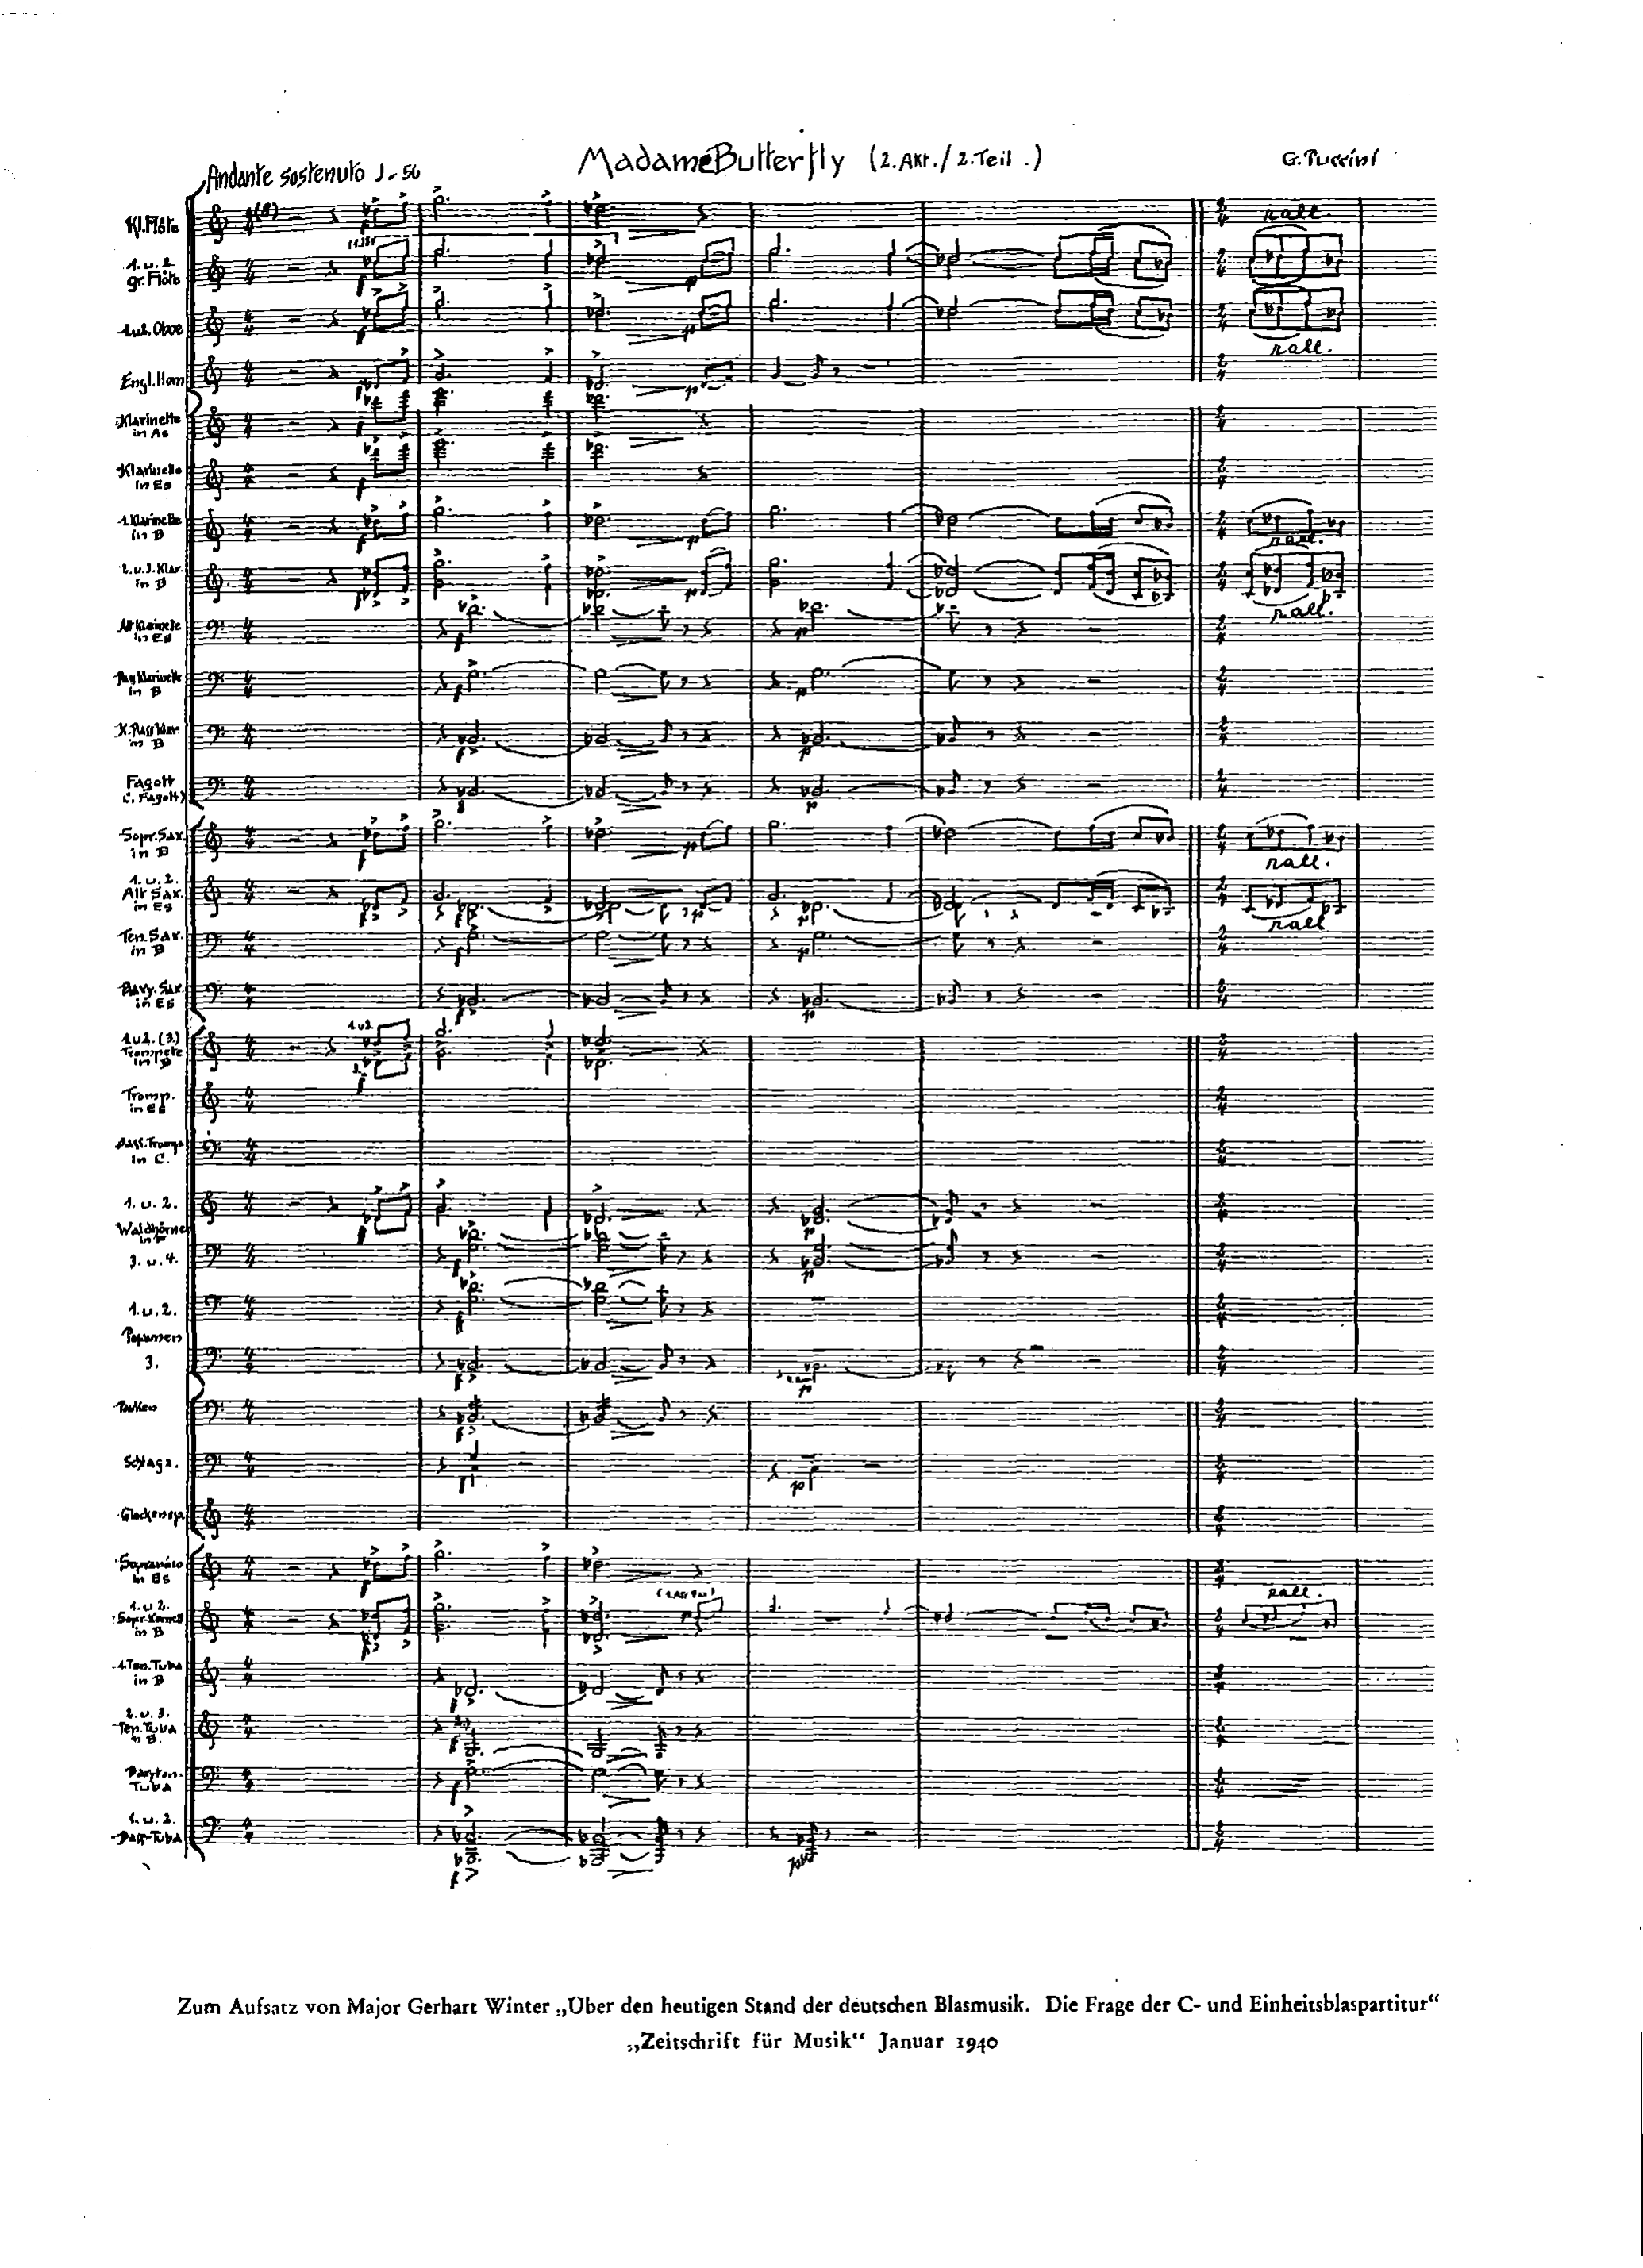 Madame Butterfly (2. Akt. / 2. Teil.)
G. Puccini
Andante sostenuto ♩ - 56
Kl. Flöte
(8)
rall.
1. u. 2.
gr. Flöte
1. u. 2. Oboe
rall.
Engl. Horn
Klarinette
in As
Klarinette
in Es
1. Klarinette
in B
rall.
2. u. 3. Klar.
in B
rall.
Alt Klarinette
in Es
in B
in B
Fagott
(C. Fagott)
Sopr. Sax.
in B
rall.
1. u. 2.
Alt Sax.
in Es
rall
Ten. Sax.
in B
Bary. Sax.
in Es
1. u. 2. (3.)
Trompete
in B
1. u. 2.
3.
Tromp.
in Es
in C.
1. u. 2.
Waldhörner
in F
3. u. 4.
1. u. 2.
Posaunen
3.
Pauken
Schlagz.
Glockensp.
in Es
1. u. 2.
Sopr. Kornett
in B
rall.
1. Ten. Tuba
in B
2. u. 3.
Ten. Tuba
in B.
Baryton.
Tuba
1. u. 2.
Bass-Tuba
Zum Aufsatz von Major Gerhart Winter „Über den heutigen Stand der deutschen Blasmusik. Die Frage der C- und Einheitsblaspartitur“
„Zeitschrift für Musik“ Januar 1940